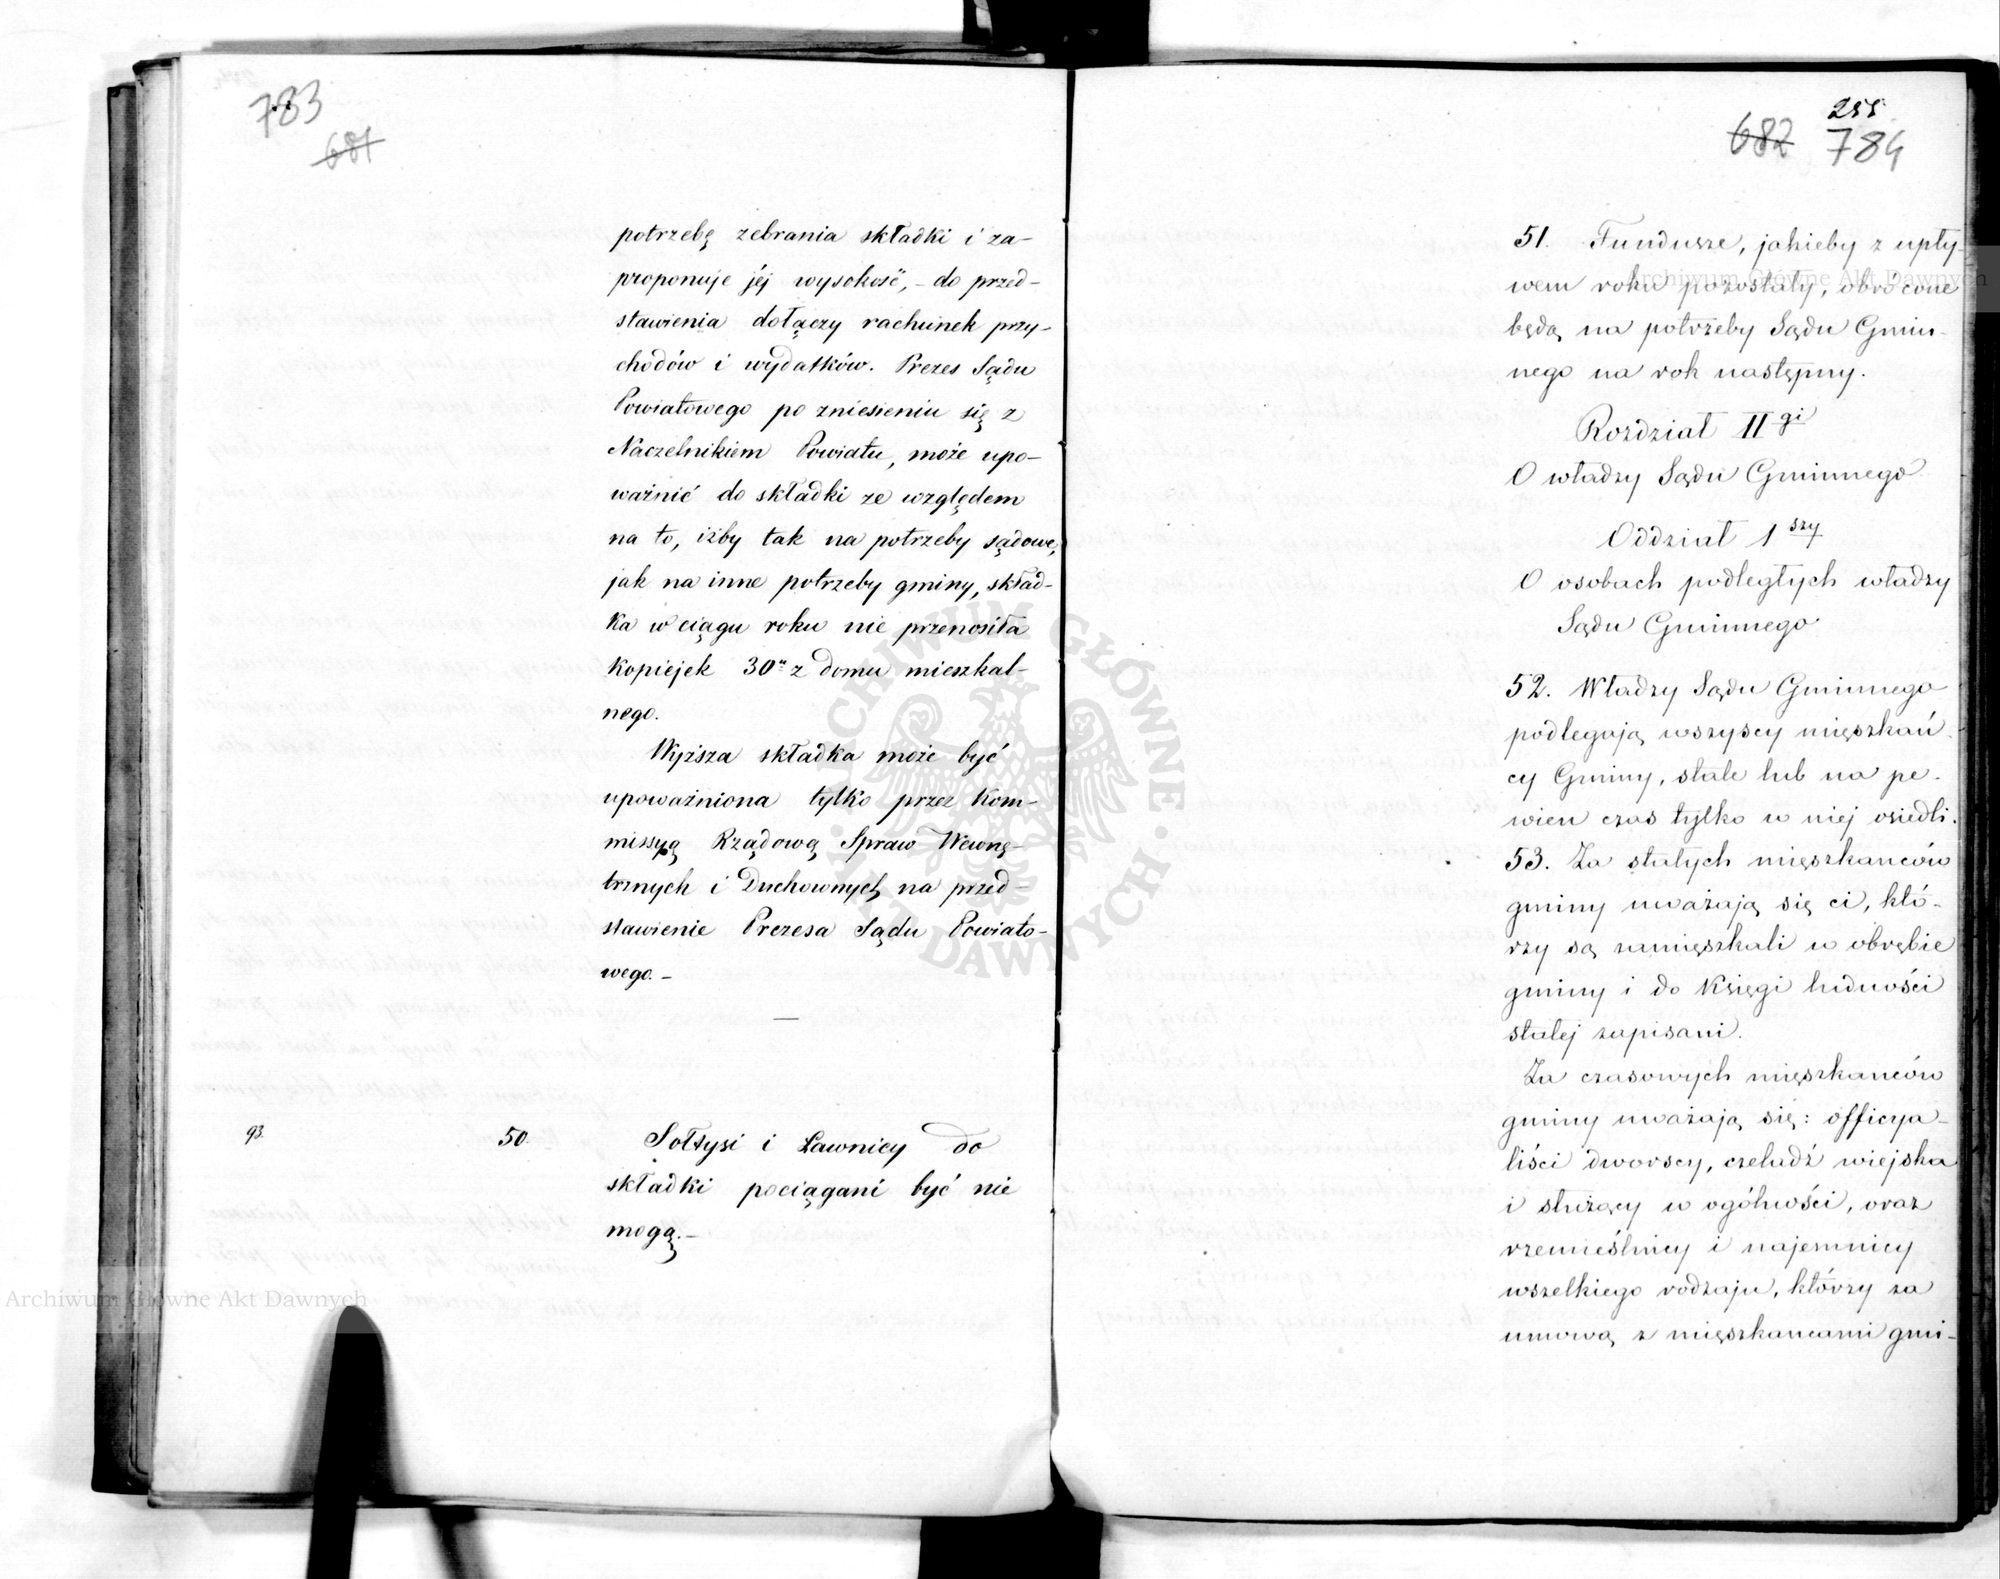 783
681
potrzebę zebrania składki i za-
proponuje jéj wysokość, - do przed-
stawienia dołączy rachunek przy-
chodów i wydatków. Prezes Sądu
Powiatowego po zniesieniu się z
Naczelnikiem Powiatu, może upo-
ważnić do składki ze względem
na to, iżby tak na potrzeby sądowe,
jak na inne potrzeby gminy, skład-
ka w ciągu roku nie przenosiła
kopiejek 30" z domu mieszkal-
nego.
Wyższa składka może być
upoważniona tylko przez Kom-
missyą Rządową Spraw Wewnę-
trznych i Duchownych na przed-
stawienie Prezesa Sądu Powiato-
wego. -
93. 50. Sołtysi i Ławnicy do
składki pociągani być nie
mogą. -
255.
682 784
51. Fundusze, jakieby z upły-
wem roku pozostały, obrócone
będą na potrzeby Sądu Gmin-
nego na rok następny.
Rozdział II gi
O władzy Sądu Gminnego
Oddział 1 szy
O osobach podległych władzy
Sądu Gminnego
52. Władzy Sądu Gminnego
podlegają wszyscy mięszkań-
cy Gminy, stale lub na pe-
wien czas tylko w niej osiedli.
53. Za stałych mięszkańców
gminy uważają się ci, któ-
rzy są zamięszkali w obrębie
gminy i do Księgi ludności
stałej zapisani.
Za czasowych mięszkańców
gminy uważają się: officya-
liści dworscy, czeladź wiejska
i służący w ogólności, oraz
rzemieślnicy i najemnicy
wszelkiego rodzaju, którzy za
umową z mięszkańcami gmi-
Archiwum Główne Akt Dawnych
Archiwum Główne Akt Dawnych
ARCHIWUM GŁÓWNE AKT DAWNYCH